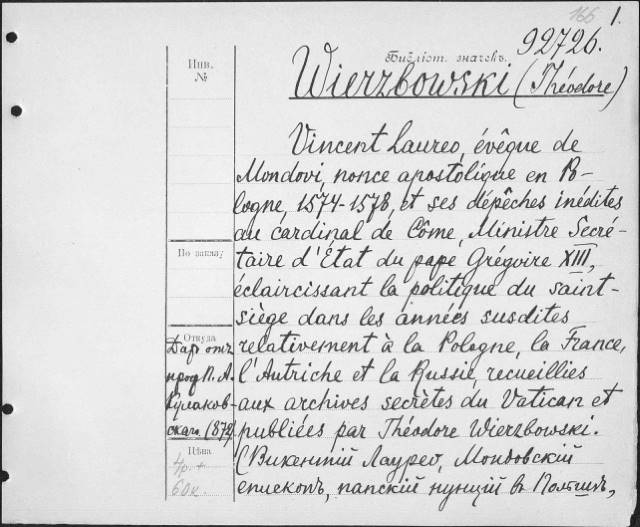 166 1.
92726.
Библіот. значекъ.
Инв.
№
Wierzbowski (Théodore)
Vincent Laureo, évêque de
Mondovi, nonce apostolique en Po-
logne, 1574-1578, et ses dépêches inédites
au cardinal de Côme, Ministre Secré-
taire d'État du pape Grégoire XIII,
éclaircissant la politique du saint-
siège dans les années susdites
relativement à la Pologne, la France,
l'Autriche et la Russie, recueillies
aux archives secrètes du Vatican et
publiées par Théodore Wierzbowski.
(Викентій Лаурео, Мондовскій
епископъ, папскій нунцій въ Польшѣ,
По заказу
Откуда
Даръ отъ
проф. П. А.
Кулаков-
скаго (872)
Цѣна
4р.
60к.